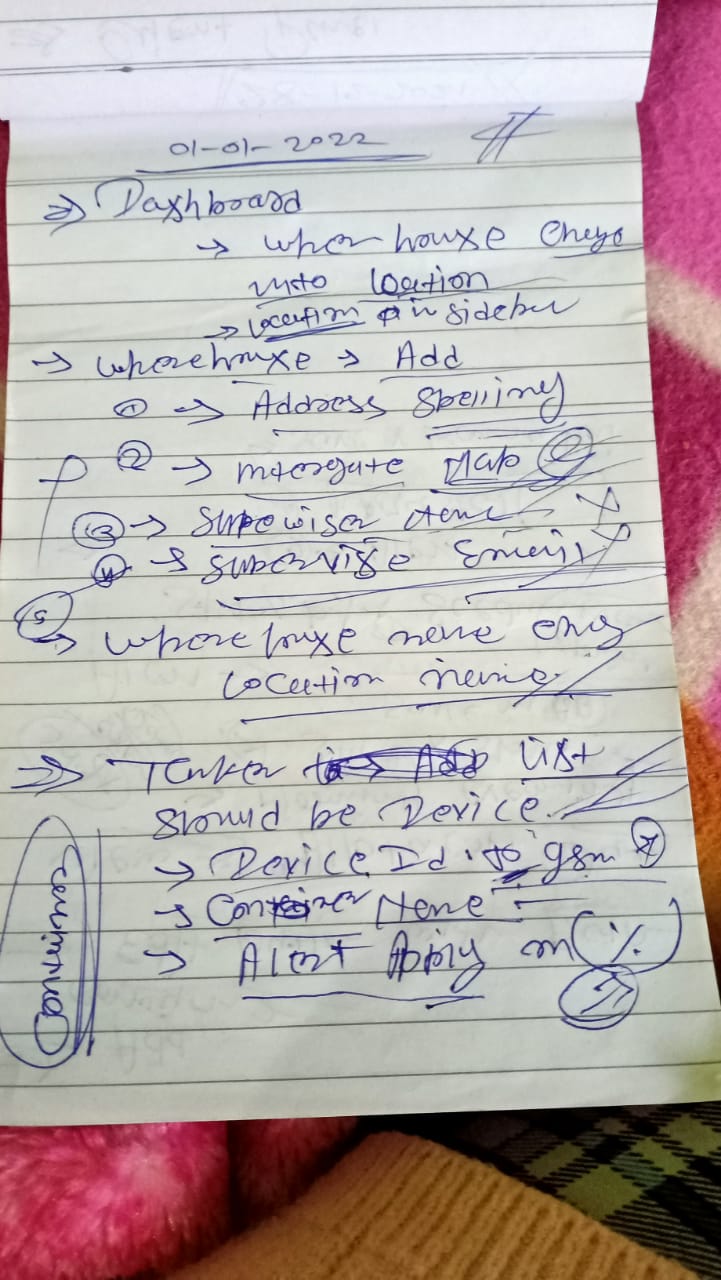 01-01-2022
⇒ Dashboard
→ wherehouxe Chege
into location
→ Location in sidebar
→ wherehouxe → Add
① → Address Spelling
② → Intergate Map
③ → Supewiser Name X
④ → Supervise Email X
⑤ → wherehouxe name
Location name
⇒ Tanker List
should be Device.
→ Device Id. to gsm
→ Container Name
→ Alert Apply on (%)